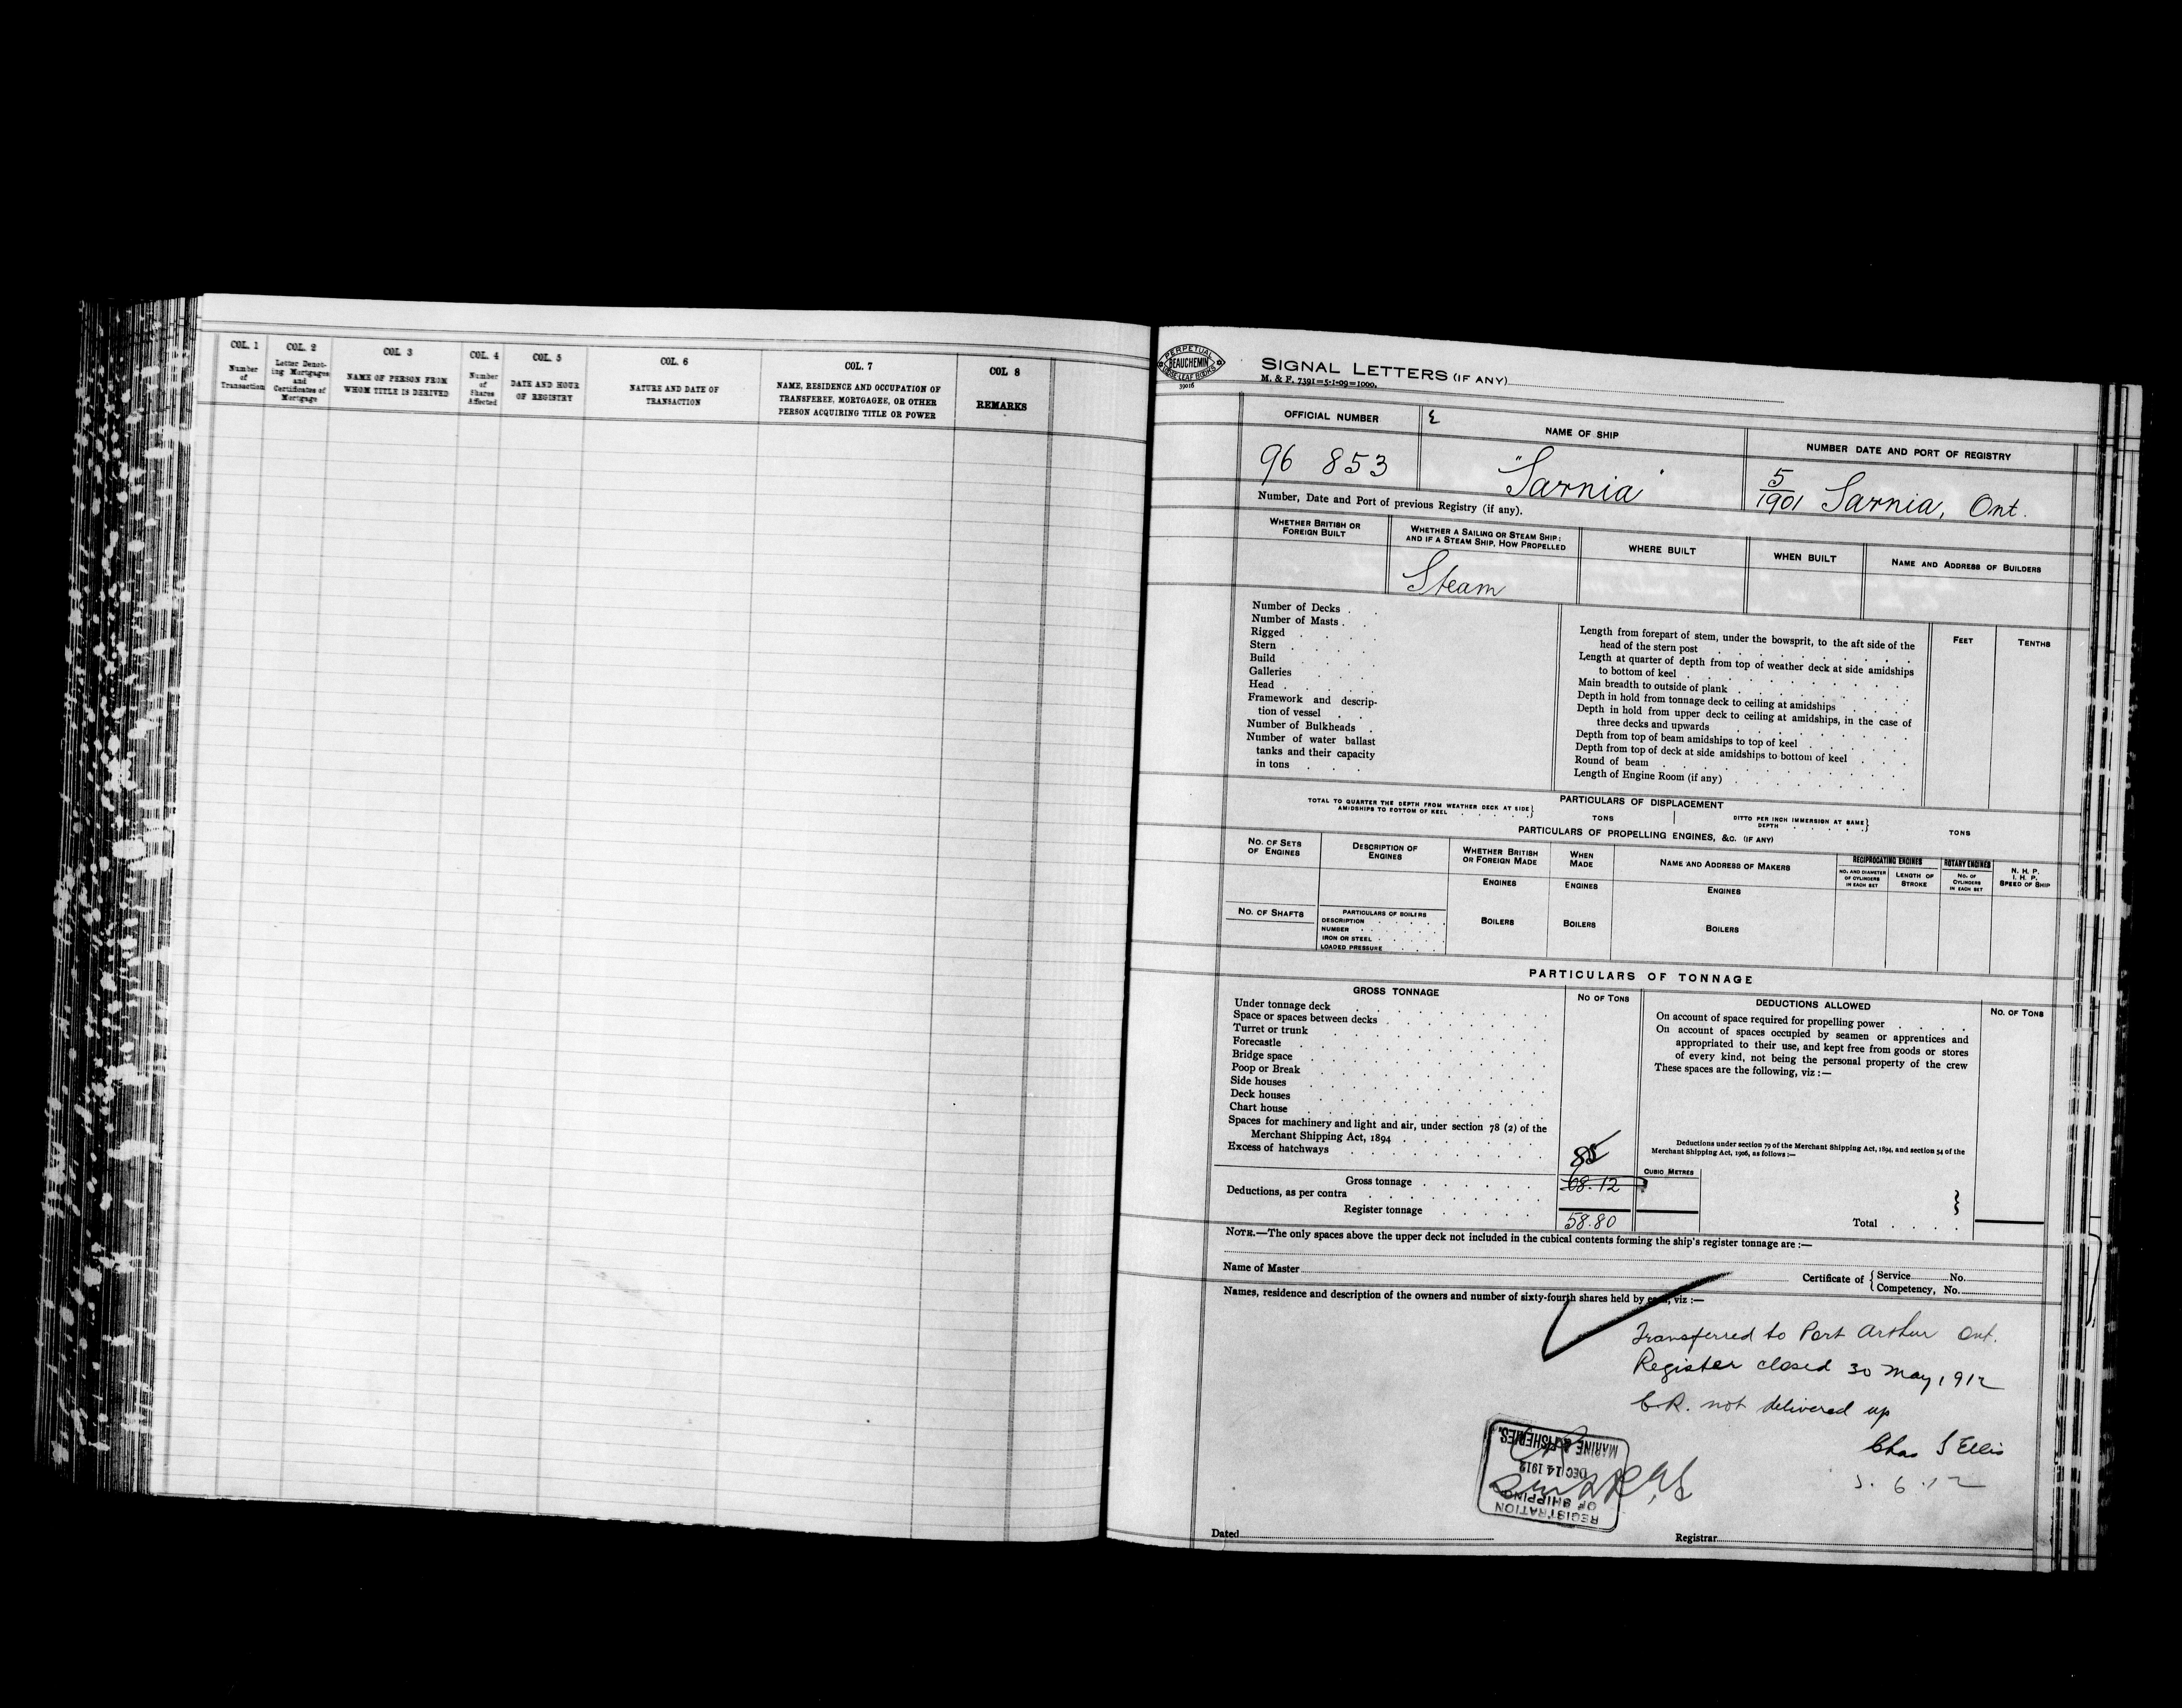 COL. 1
Number
of
Transaction
COL. 2
Letter Denot-
ing Mortgages
and
Certificates of
Mortgage
COL 3
NAME OF PERSON FROM
WHOM TITLE IS DERIVED
COL. 4
Number
of
Shares
Affected
COL. 5
DATE AND HOUR
OF REGISTRY
COL. 6
NATURE AND DATE OF
TRANSACTION
COL. 7
NAME, RESIDENCE AND OCCUPATION OF
TRANSFEREE, MORTGAGEE, OR OTHER
PERSON ACQUIRING TITLE OR POWER
COL 8
REMARKS
PERPETUAL
BEAUCHEMIN
LOOSE LEAF BOOKS
39016
SIGNAL LETTERS (IF ANY)
M. & F. 7391=5-1-09=1000.
OFFICIAL NUMBER
NAME OF SHIP
NUMBER DATE AND PORT OF REGISTRY
96 853
"Sarnia"
5/1901 Sarnia, Ont.
Number, Date and Port of previous Registry (if any).
WHETHER BRITISH OR
FOREIGN BUILT
WHETHER A SAILING OR STEAM SHIP:
AND IF A STEAM SHIP, HOW PROPELLED
WHERE BUILT
WHEN BUILT
NAME AND ADDRESS OF BUILDERS
Steam
Number of Decks . .
Number of Masts . .
Rigged . . . .
Stern . . . .
Build . . . .
Galleries . . . .
Head . . . . .
Framework and descrip-
tion of vessel . .
Number of Bulkheads .
Number of water ballast
tanks and their capacity
in tons . . .
FEET
TENTHS
Length from forepart of stem, under the bowsprit, to the aft side of the
head of the stern post
Length at quarter of depth from top of weather deck at side amidships
to bottom of keel
Main breadth to outside of plank
Depth in hold from tonnage deck to ceiling at amidships
Depth in hold from upper deck to ceiling at amidships, in the case of
three decks and upwards
Depth from top of beam amidships to top of keel
Depth from top of deck at side amidships to bottom of keel
Round of beam
Length of Engine Room (if any)
PARTICULARS OF DISPLACEMENT
TOTAL TO QUARTER THE DEPTH FROM WEATHER DECK AT SIDE
AMIDSHIPS TO BOTTOM OF KEEL
TONS
DITTO PER INCH IMMERSION AT SAME
DEPTH
TONS
PARTICULARS OF PROPELLING ENGINES, &C. (IF ANY)
NO. OF SETS
OF ENGINES
DESCRIPTION OF
ENGINES
WHETHER BRITISH
OR FOREIGN MADE
WHEN
MADE
NAME AND ADDRESS OF MAKERS
RECIPROCATING ENGINES
NO. AND DIAMETER
OF CYLINDERS
IN EACH SET
LENGTH OF
STROKE
ROTARY ENGINES
NO. OF
CYLINDERS
IN EACH SET
N. H. P.
I. H. P.
SPEED OF SHIP
ENGINES
ENGINES
ENGINES
NO. OF SHAFTS
PARTICULARS OF BOILERS
DESCRIPTION
NUMBER
IRON OR STEEL
LOADED PRESSURE
BOILERS
BOILERS
BOILERS
PARTICULARS OF TONNAGE
GROSS TONNAGE
NO OF TONS
DEDUCTIONS ALLOWED
NO. OF TONS
Under tonnage deck
Space or spaces between decks
Turret or trunk
Forecastle
Bridge space
Poop or Break
Side houses
Deck houses
Chart house
Spaces for machinery and light and air, under section 78 (2) of the
Merchant Shipping Act, 1894
Excess of hatchways
On account of space required for propelling power
On account of spaces occupied by seamen or apprentices and
appropriated to their use, and kept free from goods or stores
of every kind, not being the personal property of the crew
These spaces are the following, viz :—
Deductions under section 79 of the Merchant Shipping Act, 1894, and section 54 of the
Merchant Shipping Act, 1906, as follows :—
CUBIC METRES
85
Gross tonnage
68.12
Deductions, as per contra
Register tonnage
58.80
Total
NOTE.—The only spaces above the upper deck not included in the cubical contents forming the ship's register tonnage are :—
Name of Master
Certificate of
Service No.
Competency, No.
Names, residence and description of the owners and number of sixty-fourth shares held by each, viz :—
Transferred to Port Arthur Ont.
Register closed 30 May, 1912
C.R. not delivered up
Chas S Ellis
3.6.12
MARINE & FISHERIES.
DEC 14 1912
REGISTRATION
OF SHIPPING
Dated
Registrar